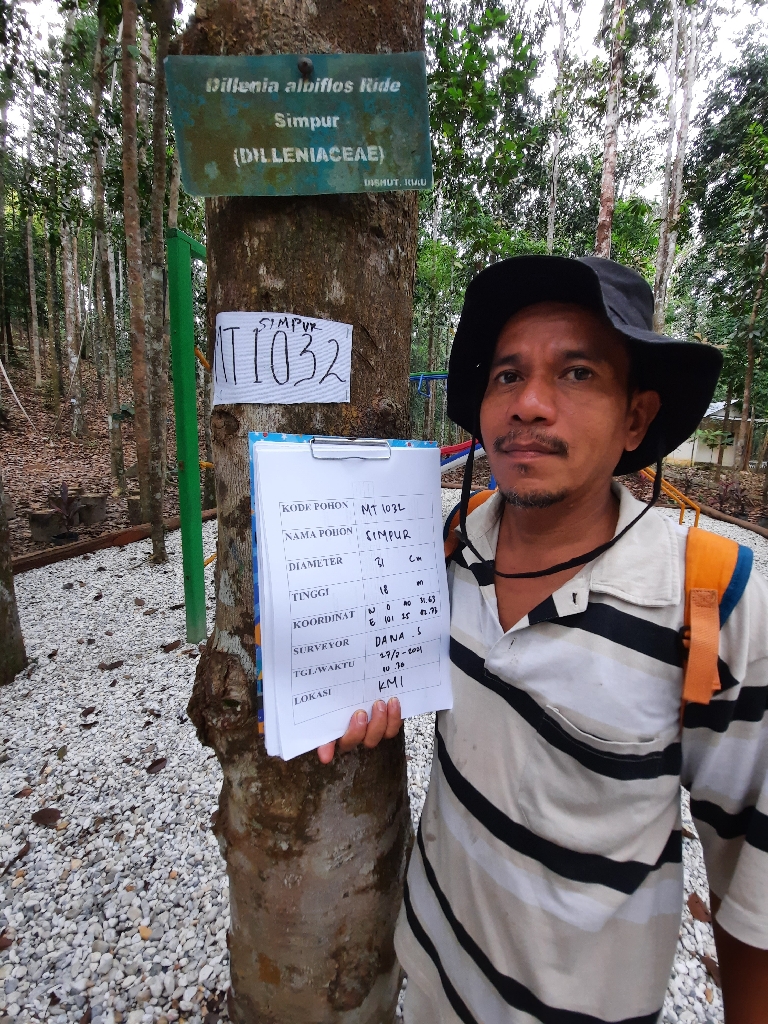 Dillenia albiflos Ride
Simpur
(DILLENIACEAE)
DISHUT. RIAU
SIMPUR
MT 1032
KODE POHON MT 1032
NAMA POHON SIMPUR
DIAMETER 31 Cm
TINGGI 18 m
KOORDINAT N 0
E 101 25
SURVEYOR DANA . S
TGL/WAKTU
10.30
LOKASI KM 1